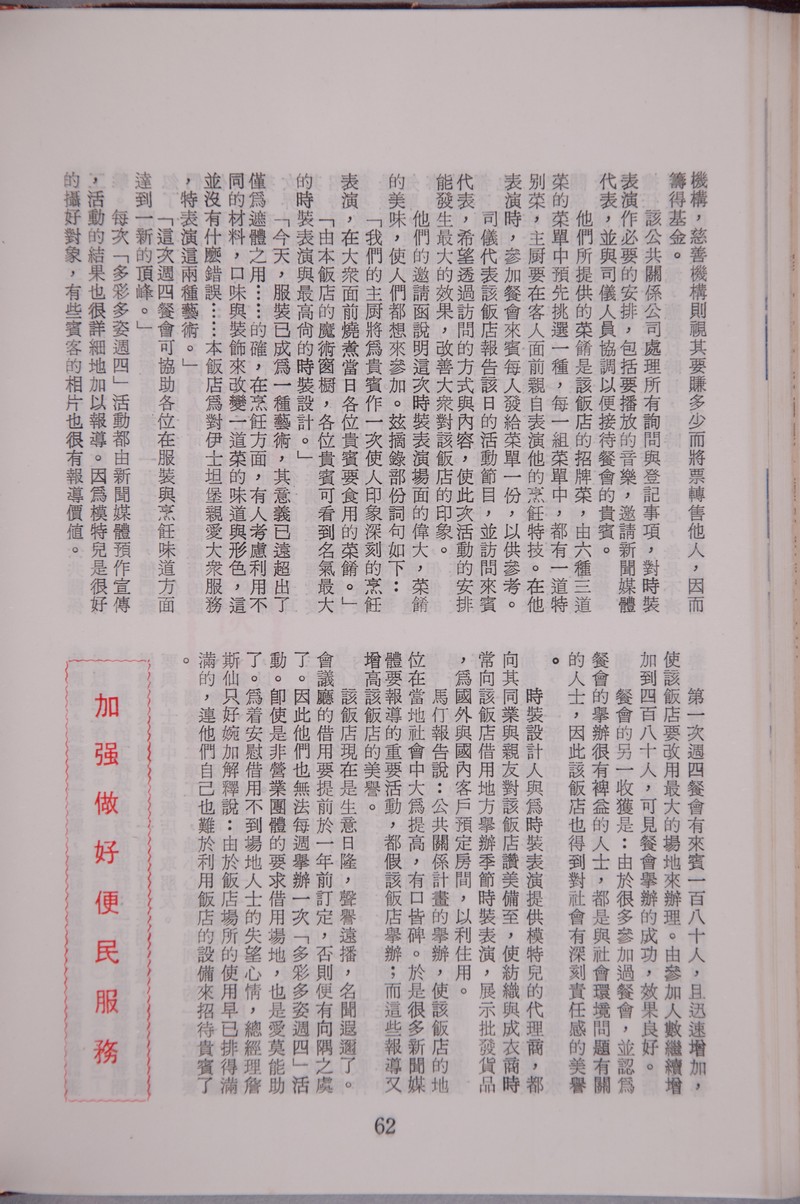 機構，慈善機構則視其要賺多少而將票轉售他人，因而
籌得基金。
該公共關係公司處理所有詢問與登記事項，對時裝
表演作必要的安排，包括要播放的音樂，邀請新聞媒體
代表，並與司儀人員協調以便接待餐會的貴賓。
他們所提供的菜餚是該飯店的招牌菜，由六種三道
菜的菜單中預先挑選一種，每一組菜單中，都有一道特
別菜，主厨要在客人面前親自表演他的烹飪特技。在他
表演時，參加餐會來賓每人發給菜單一份，以供參考。
司儀代表該飯店報告該日的活動節目，並訪問來賓
代表，希望透過訪問的方式與內容，使此次活動的安排
能發生最大的效果，改善大衆對該飯店的印象。
他們的邀請函說明這次時裝表演場面的偉大，菜餚
的美味，使人們都想來參加。玆摘錄部份詞句如下：
「我們的主厨將爲貴賓作一次使人印象深刻的烹飪
表演，在大衆面前燒煮當日各位貴賓要食用的菜餚。」
「由本飯店的魔術窗橱，各位貴賓可看到名氣最大
的時裝表演與最高尙的時裝設計。」
「今天，服裝已成爲一種藝術，其意義已遠超出了
僅爲遮體之用……的確，在烹飪方面，有人考慮利用不
同的材料，口味與裝飾來改變一道菜的味道與形色，這
並沒有什麼錯誤……本飯店爲對伊士坦堡親愛大衆服務
，特表演這兩種藝術。」
「這次週四餐會可協助各位在服裝與烹飪味道方面
達到一新的頂峰。」
每次「多彩多姿週四」活動都由新聞媒體預作宣傳
，活動的結果也很詳細地加以報導。因爲模特兒是很好
的攝好對象，有些賓客的相片也很有報導價値。
第一次週四餐會有來賓一百八十人，且迅速增加，
使該飯店要改用最大的場地來辦理。由參加人數繼續增
加到四百八十人，可見餐會舉辦的成功，效果良好。
餐會的另一收獲是：由於很多參加過餐會，並認爲
餐會的舉辦很有裨益的人士，都是與社會環境問題有關
的人士，因此該飯店也得到對社會有深刻責任感的美譽
。
時裝設計人與爲時裝表演提供模特兒的代理商，都
向其同業與親友對該飯店讚美備至，使紡織與成衣商時
常向該飯店借用地方舉辦季節時裝表演，展示批發貨品
，爲國外與國內客戶預定房間，以利住用。
馬仃報告說：公共關係計畫的舉辦，使該飯店的地
位在當地社會中大爲提高，有口皆碑。於是很多新聞媒
體要報導的重要活動，都假該飯店舉辦；而這些報導又
增高該飯店的美譽。
該飯店現在是生意日隆，聲譽遠播，名聞遐邇了。
會議廳的借用要提前於一年前訂定，否則便有向隅之處
了。因此他們也無法每週舉辦一次「多彩多姿週四」活
動。卽使是非營業團體的要求借用場地，也是愛莫能助
了。爲着安慰借用不到場地人士的失望心情，總經理詹
斯仙只好婉加解釋說：由於飯店場所的使用早已排得滿
滿的，連他們自己也難於利用飯店的設備來招待貴賓了
。
加强做好便民服務
62